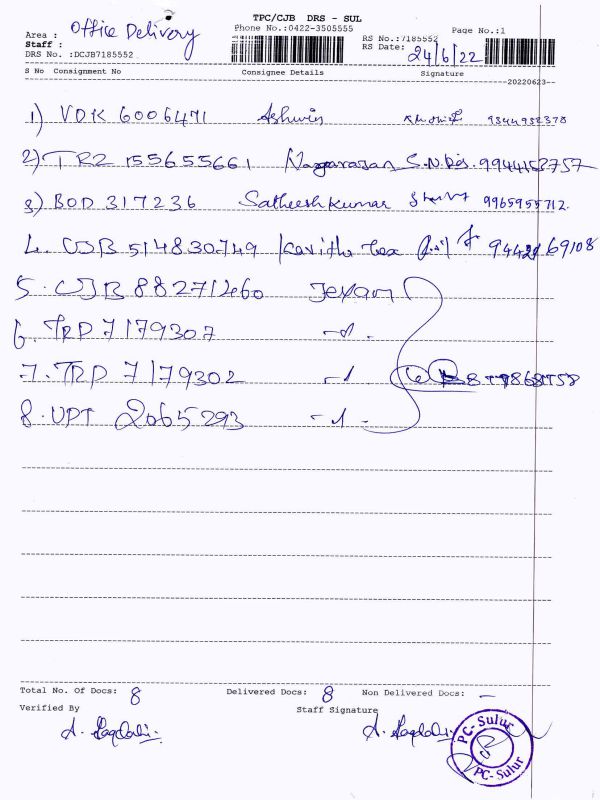 TPC/CJB DRS - SUL
Area : Office Delivery Phone No.:0422-3505555 Page No.:1
Staff : RS No.:7185552
DRS No. :DCJB7185552 RS Date: 24/6/22
S No Consignment No Consignee Details Signature
20220623
1) VOK 6006471 Ashwin 9344952378
2) TRZ 155655661 Nagarasan S.N. 9944153757
3) BOD 317236 Satheeshkumar 9965955712.
4. CJB 514830749 Kavitha Tex 69108
5. CJB 88271460 Jexam
6. TRP 7179307 -"-
7. TRP 7179302 -"-
8. UPT 2065293 -"-
Total No. Of Docs: 8 Delivered Docs: 8 Non Delivered Docs: -
Verified By Staff Signature
PC-Sulur
PC-Sulur